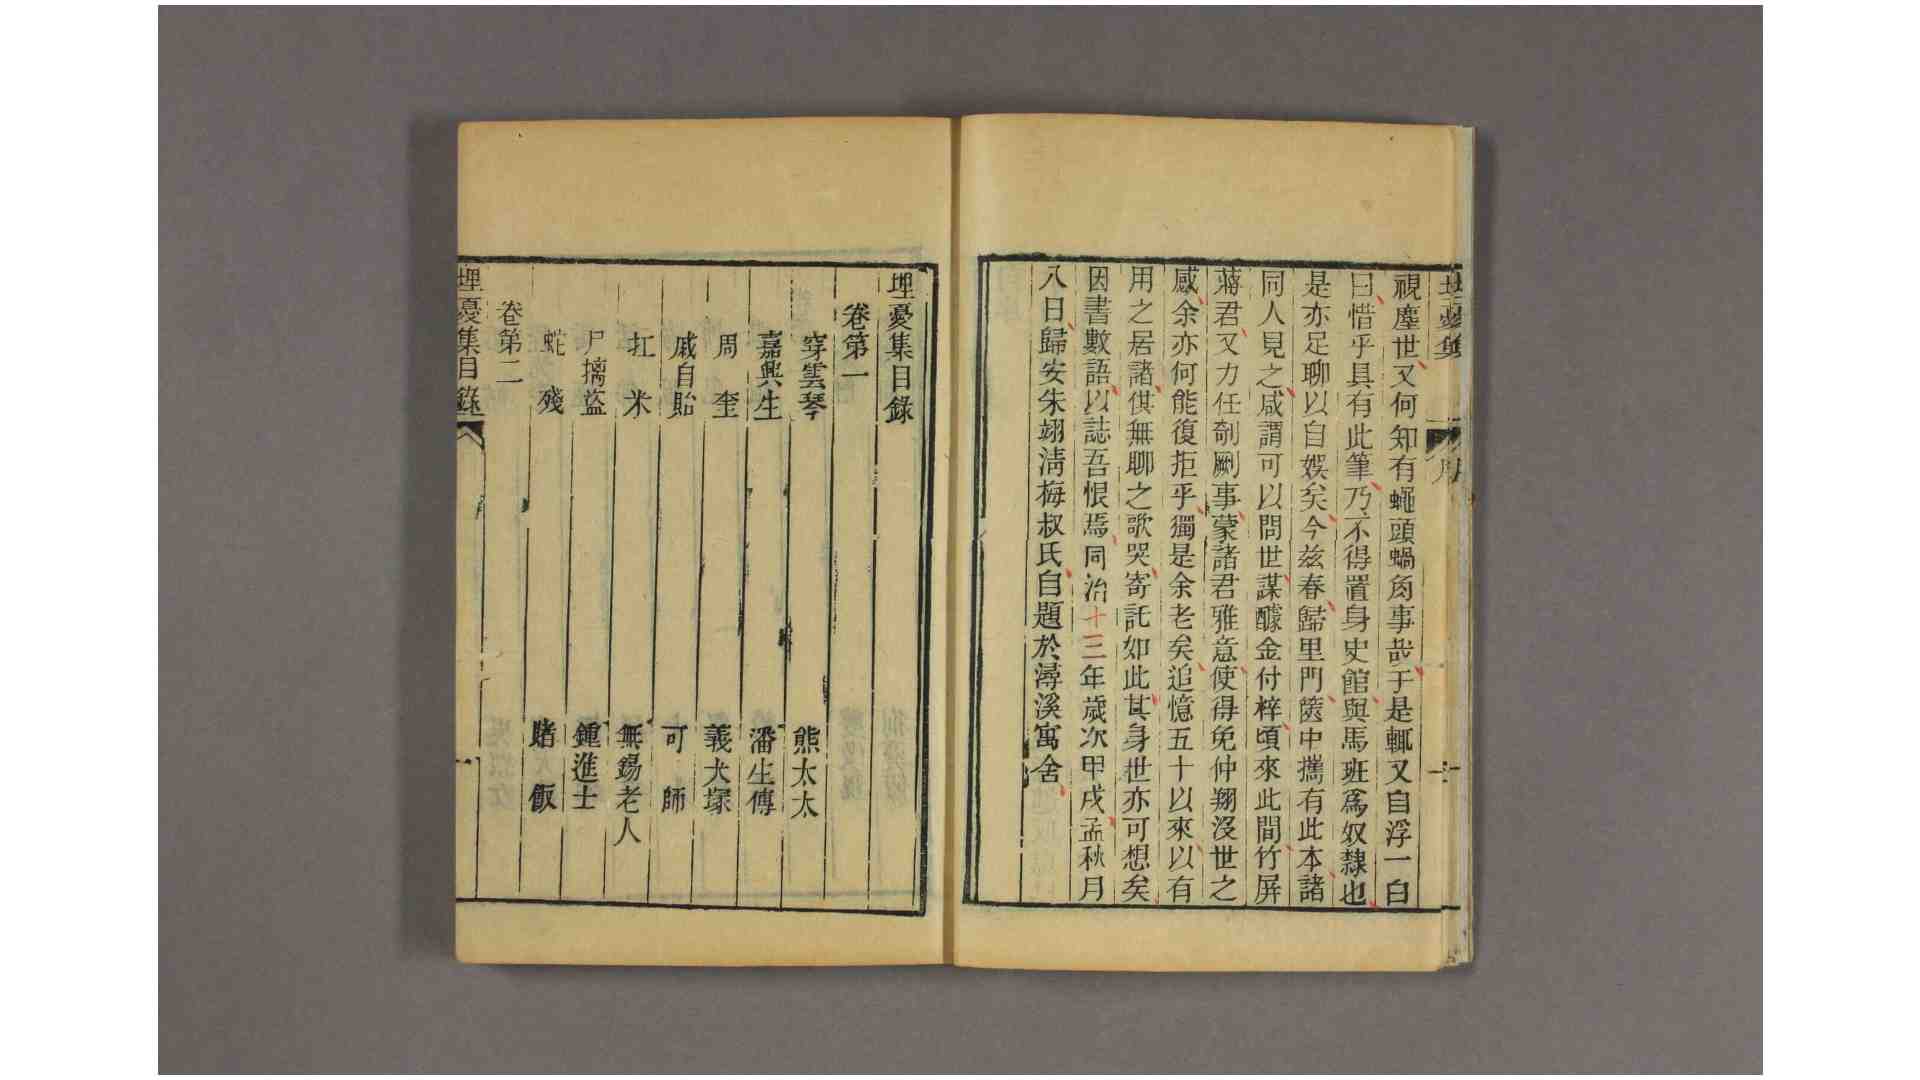 視塵世又何知有蠅頭蝸角事哉于是輒又自浮一白
曰惜乎具有此筆乃不得置身史館與馬班爲奴隸也
是亦足聊以自娛矣今兹春歸里門篋中攜有此本諸
同人見之咸謂可以問世謀醵金付梓頃來此間竹屏
蔣君又力任剞劂事蒙諸君雅意使得免仲翔沒世之
感余亦何能復拒乎獨是余老矣追憶五十以來以有
用之居諸供無聊之歌哭寄託如此其身世亦可想矣
因書數語以誌吾恨焉同治十三年歲次甲戌孟秋月
八日歸安朱翊淸梅叔氏自題於潯溪寓舍
埋憂集目錄
卷第一
穿雲琴 熊太太
嘉興生 潘生傳
周奎 義犬塚
戚自貽 可師
扛米 無錫老人
尸擒盜 鍾進士
蛇殘 賭飯
卷第二
埋憂集目錄
一